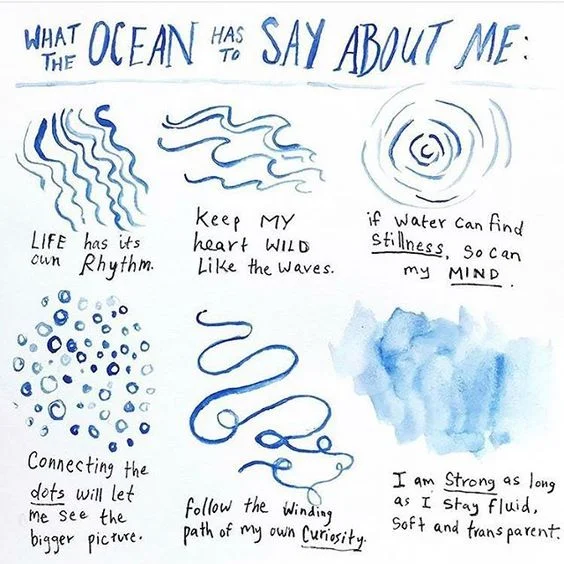 WHAT THE OCEAN HAS TO SAY ABOUT ME:
LIFE has its
own Rhythm.
Keep MY
heart WILD
Like the waves.
if water can find
Stillness, so can
my MIND.
Connecting the
dots will let
me see the
bigger picture.
follow the winding
path of my own Curiosity.
I am Strong as long
as I stay fluid,
soft and transparent.